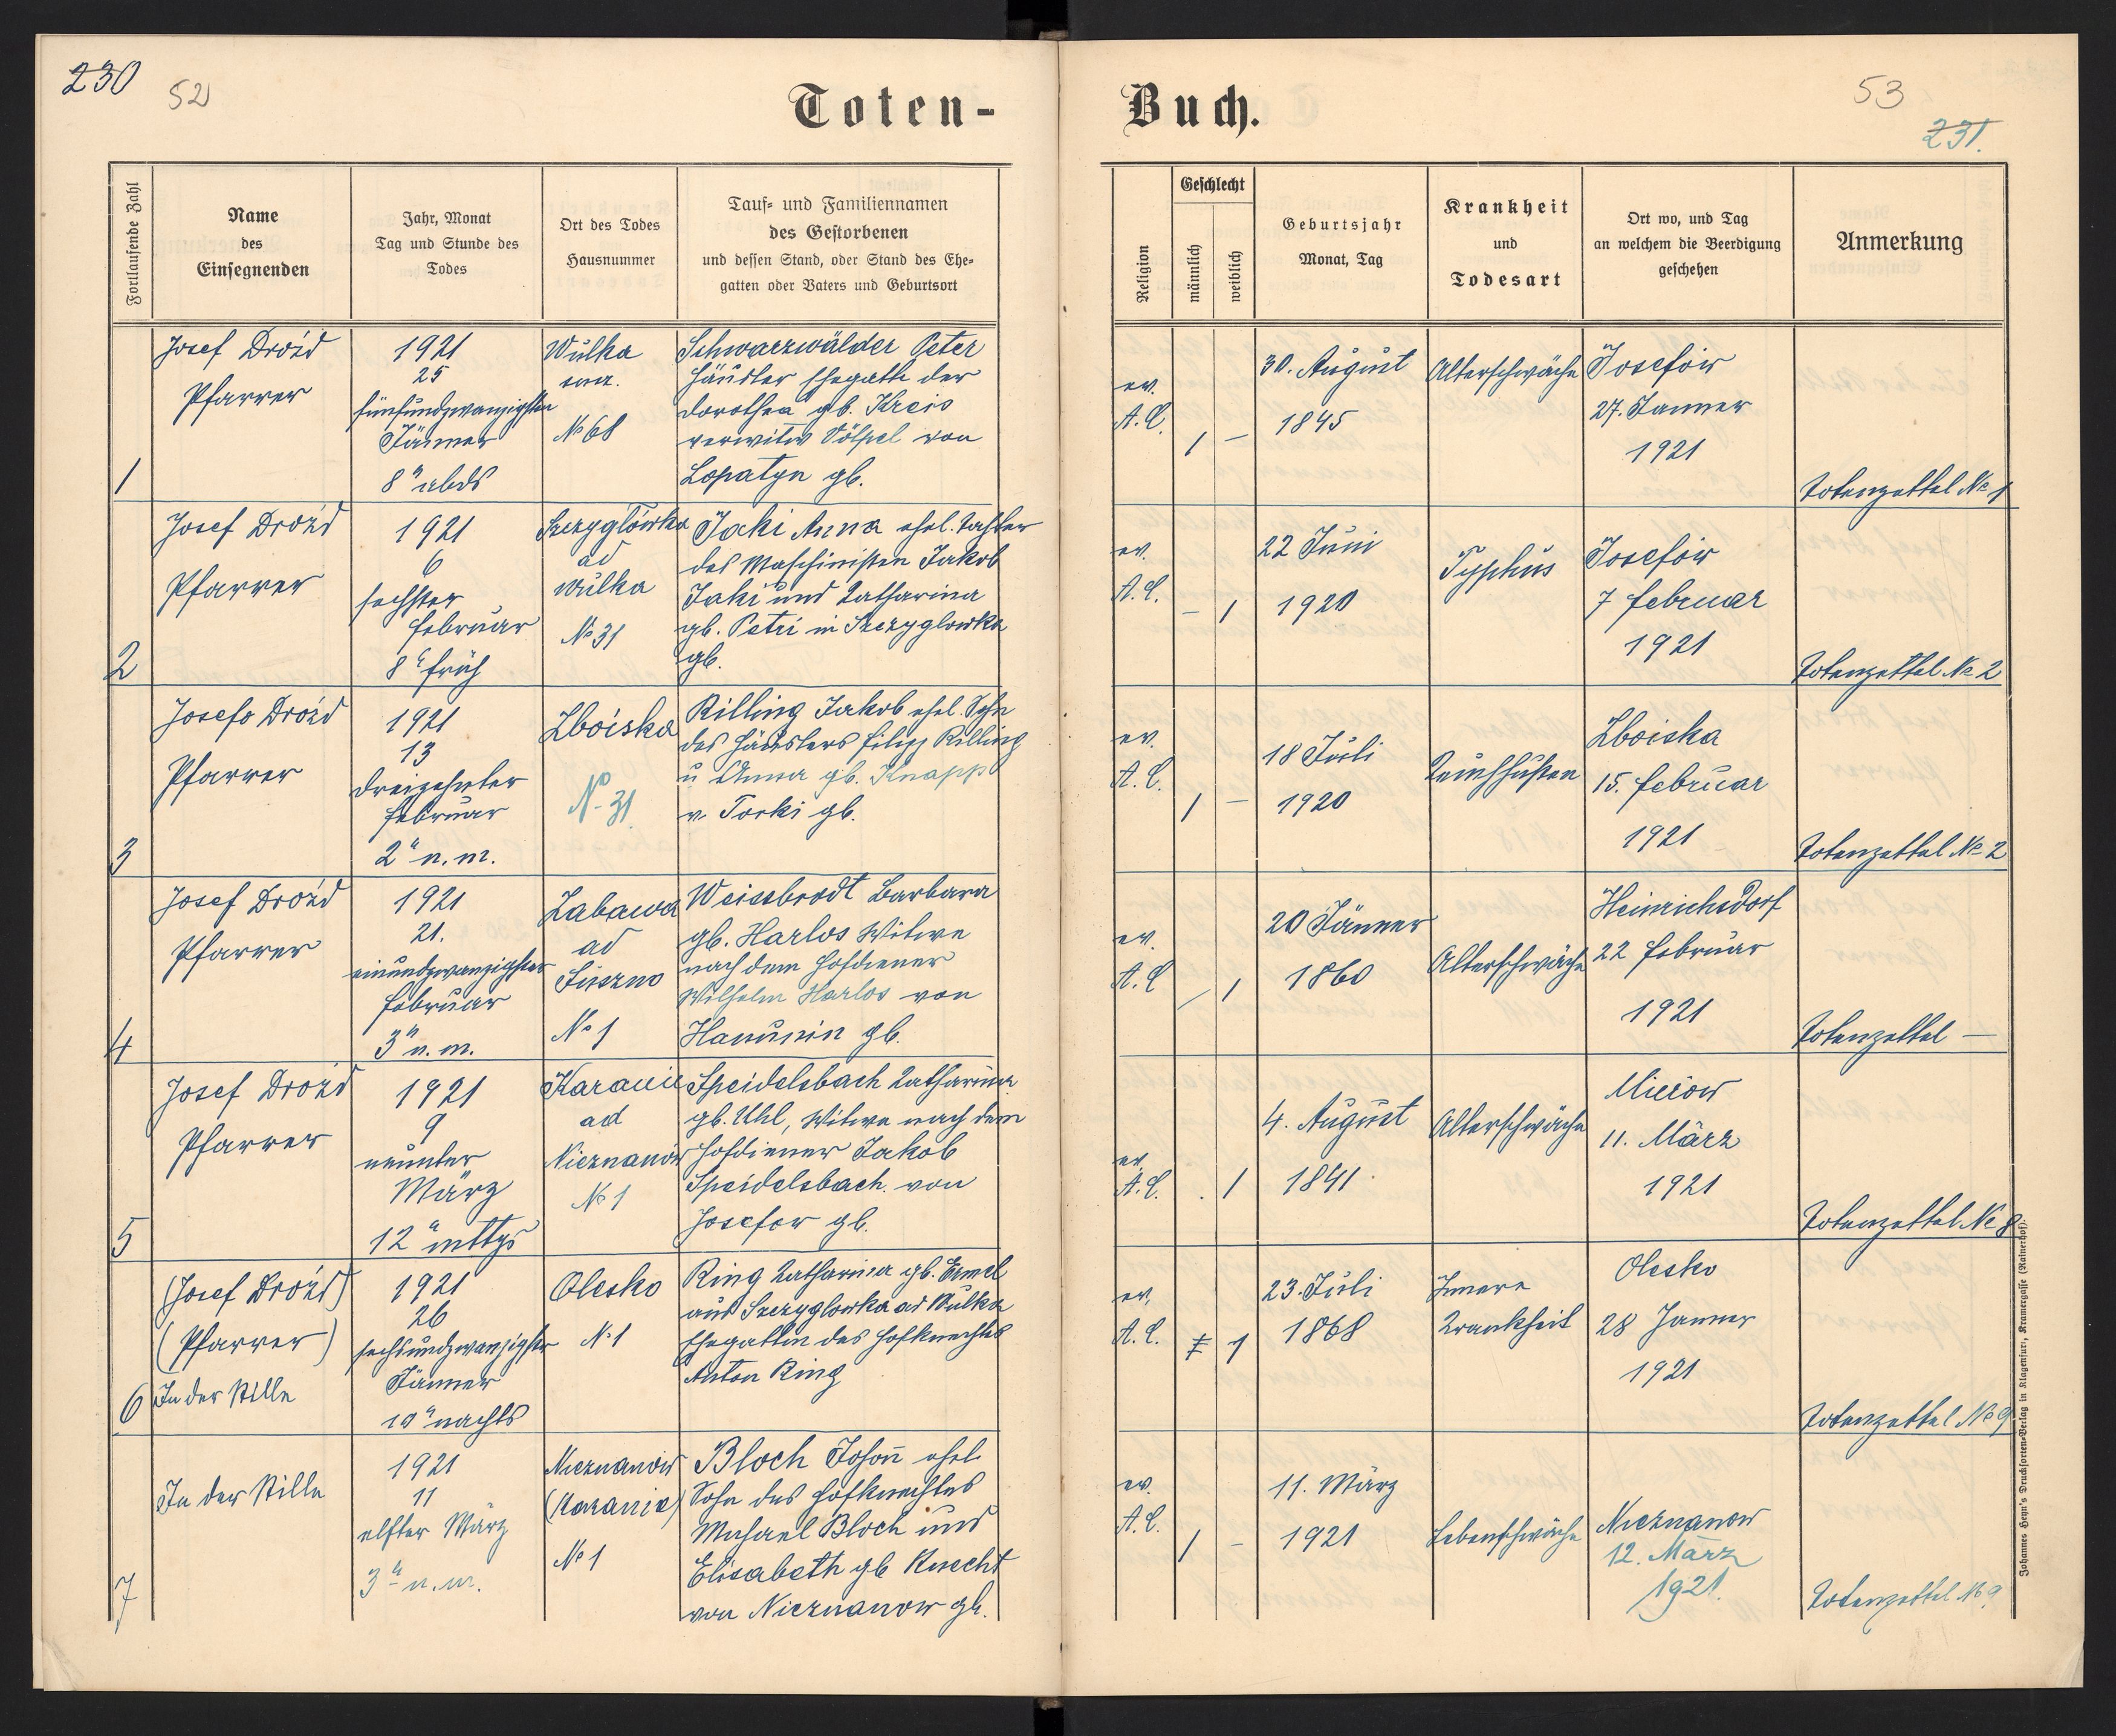 230
52
Toten-
Fortlaufende Zahl
Name
des
Einsegnenden
Jahr, Monat
Tag und Stunde des
Todes
Ort des Todes
Hausnummer
Tauf- und Familiennamen
des Gestorbenen
und dessen Stand, oder Stand des Ehe-
gatten oder Vaters und Geburtsort
1
Josef Drożd
Pfarrer
1921
25
fünfundzwanzigsten
Jänner
8h abds
Wulka
№ 68
Schwarzwälder Peter
Häusler Ehegatte der
Dorothea gb. Kreis
verwitw Völpel von
Lopatyn gb.
2
Josef Drożd
Pfarrer
1921
6
sechster
Februar
8h früh
Szczyglówka
ad
Wulka
№ 31
Jaki Anna ehel. Tochter
des Maschinisten Jakob
Jaki und Katharina
gb. Petri in Szczyglowka
gb.
3
Josefo Drożd
Pfarrer
1921
13
dreizehnter
Februar
2h n.m.
Zboiska
№ 31
Rilling Jakob ehel. Sohn
des Häuslers Filipp Rilling
u Anna gb. Knapp
v. Torki gb.
4
Josef Drożd
Pfarrer
1921
21.
einundzwanzigster
Februar
3h n.m.
Zabawa
ad
№ 1
Weissbrodt Barbara
gb. Harlos Witwe
nach dem Hofdiener
Wilhelm Harlos von
Hanunin gb.
5
Josef Drożd
Pfarrer
1921
9
neunter
März
12h mttgs
ad
Nieznanów
№ 1
Speidelsbach Katharina
gb. Uhl, Witwe nach dem
Hofdiener Jakob
Speidelsbach von
Josefow gb.
6
(Josef Drożd)
(Pfarrer)
In der Stille
1921
26
sechsundzwanzigster
Jänner
10h nachts
Olesko
№ 1
Ring Katharina gb. Ermel
aus Szczyglowka ad Wulka
Ehegattin des Hofknechtes
Anton Ring
7
In der Stille
1921
11
elfter März
3h n.m.
Nieznanow
№ 1
Bloch Johann ehel
Sohn des Hofknechtes
Michael Bloch und
Elisabeth gb Knecht
von Nieznanow gb.
Buch.
53
231.
Religion
Geschlecht
männlich
weiblich
Geburtsjahr
Monat, Tag
Krankheit
und
Todesart
Ort wo, und Tag
an welchem die Beerdigung
geschehen
Anmerkung
ev.
A.C.
1
–
30. August
1845
Alterschwäche
Josefow
27. Janner
1921
Totenzettel № 1
ev.
A.C.
–
1
22 Juni
1920
Typhus
Josefow
7 Februar
1921
Totenzettel № 2
ev.
A.C.
1
–
18 Juli
1920
Keuchhusten
Zboiska
15. Februar
1921
Totenzettel № 2
ev.
A.C
–
1
20 Jänner
1860
Alterschwäche
Heinrichsdorf
22 Februar
1921
Totenzettel —
ev.
A.C.
.
1
4. August
1841
Alterschwäche
11. März
1921
Totenzettel № 8
ev.
A.C.
1
23. Juli
1868
Innere
Krankheit
Olesko
28 Janner
1921
Totenzettel № 9
ev.
A.C.
1
–
11. März
1921
Lebenschwäche
Nieznanow
12. März
1921.
Totenzettel № 9
Johannes Heyn's Drucksorten-Verlag in Klagenfurt, Kramergasse (Rainerhof).